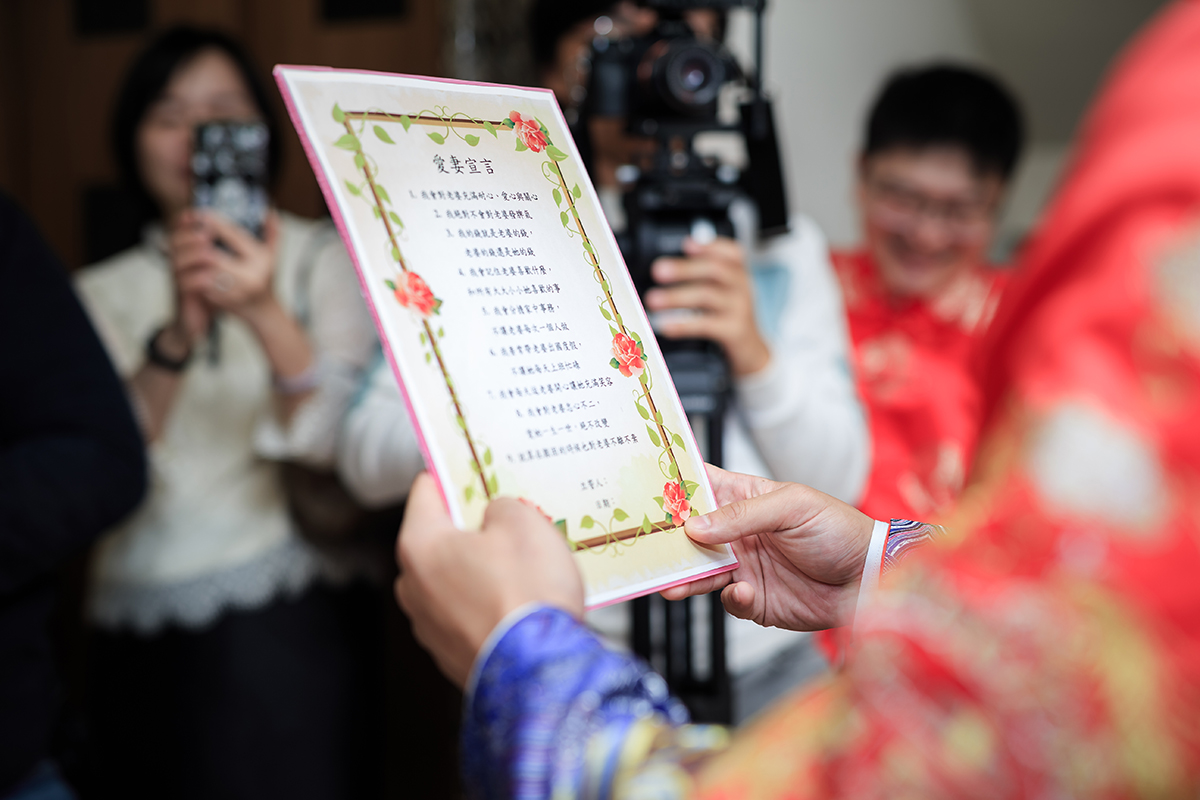 愛妻宣言
1. 我會對老婆充滿耐心、愛心與關心
2. 我絕對不會對老婆發脾氣
3. 我的錢就是老婆的錢,
老婆的錢還是她的錢
4. 我會記住老婆喜歡什麼,
和所有大大小小她喜歡的事
5. 我會分擔家中事務,
不讓老婆每次一個人做
6. 我要常帶老婆出國度假,
不讓她每天上班忙碌
7. 我會每天逗老婆開心讓她充滿笑容
8. 我會對老婆忠心不二,
愛她一生一世,絕不改變
9. 就算在艱困的時候也對老婆不離不棄
立誓人:
日期: